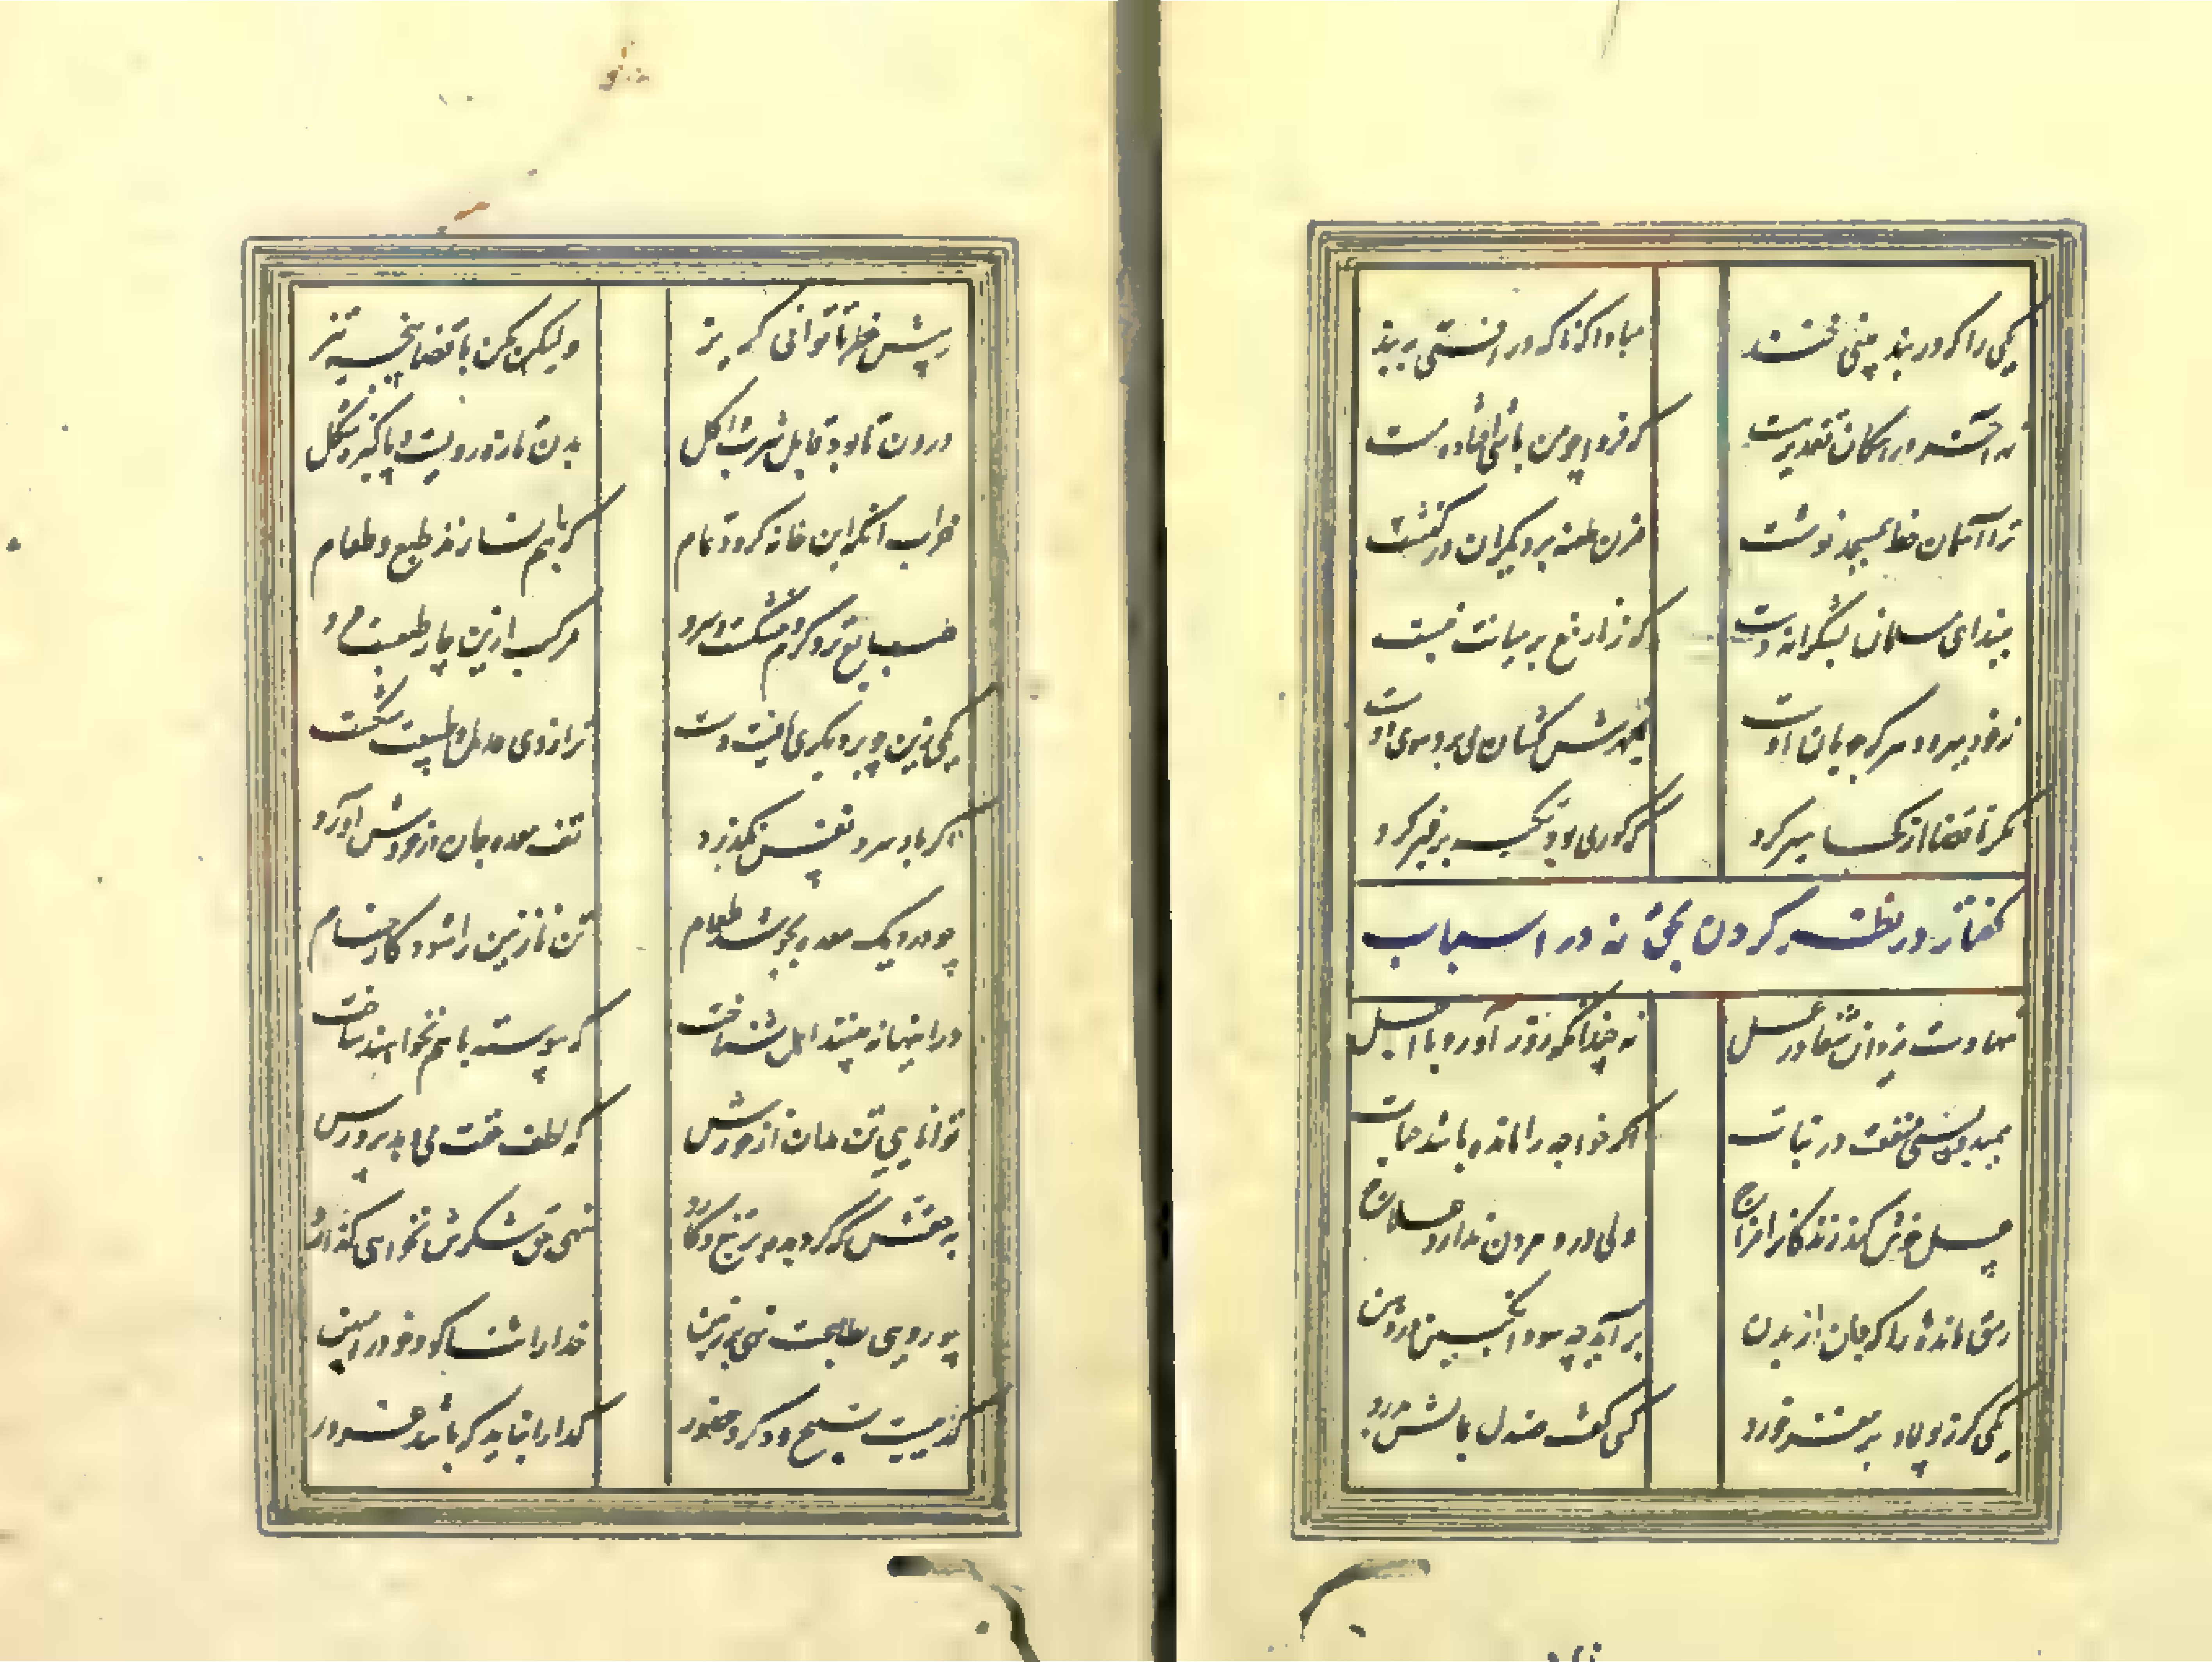 یکی را که در بند بینی مخند مبادا که ناگه در افتی به بند
نه آخر در امکان تقدیر هست که فردا چو من باشی افتاده مست
ترا آسمان خط بمسجد نوشت مزن طعنه بر دیگران در کنشت
ببند ای مسلمان بشکرانه دست که زنار مغ بر میانت نبست
نه خود میرود هر که جویان اوست کشان می برد سوی اوست
نگر تا قضا از کجا سیر کرد که کوری بود تکیه بر غیر کرد
گفتار در نظر کردن بحق نه در اسباب
نهادست یزدان شفا در عسل نه چندانکه زور آورد با اجل
همیدون بسی منفعت در نبات اگر خواجه را مانده باشد حیات
عسل خوش کند زندگانرا مزاج ولی درد مردن ندارد علاج
رمق مانده را که جان از بدن بر آید چه سود انگبین در دهن
یکی گرز پولاد بر مغز خورد کسی گفت صندل بمالش بدرد
ز پیش خطر تا توانی گریز ولیکن مکن با قضا پنجه تیز
درون تا بود قابل شرب و اکل بدن تازه رویست و پاکیزه شکل
خراب آنگه این خانه گردد تمام که با هم نسازند طبع و طعام
طبایع تر و گرم و خشکست و سرد مرکب ازین چار طبعست مرد
یکی زین چو بر دیگری یافت دست ترازوی عدل طبیعت شکست
اگر باد سرد نفس نگذرد تف معده جان در خروش آورد
چو در دیگ معده بجوشد طعام تن نازنین را شود کار خام
در اینها نبندند اهل شناخت که پیوسته با هم نخواهند ساخت
توانایی تن مدان از خورش که لطف حقت می دهد پرورش
به حقش که گر دیده بر تیغ و کارد نهی حق شکرش نخواهی گذارد
چو رویی بطاعت نهی بر زمین خدا را ثنا گو و خود را مبین
گداییست تسبیح و ذکر و حضور گدا را نباید که باشد غرور